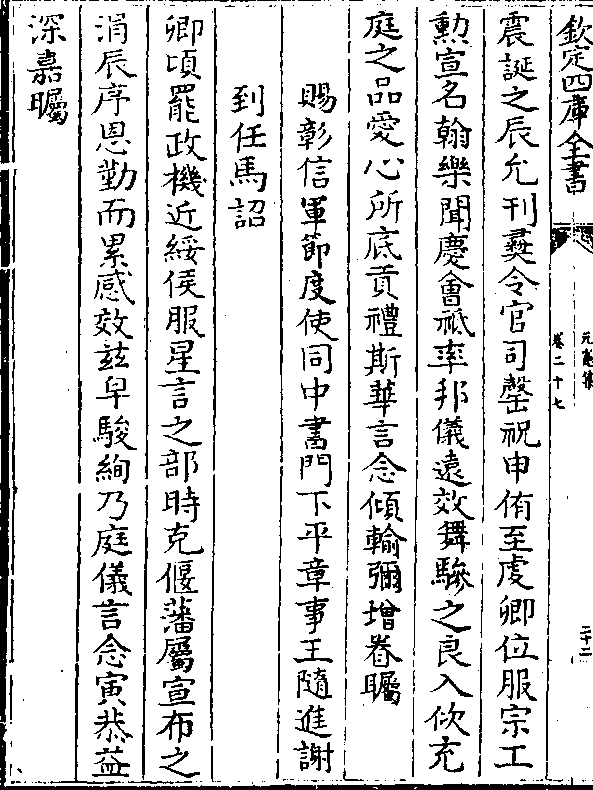 欽定四庫全書
元憲集
卷二十七
二十二
震誕之辰允刊彛令官司罄祝申侑至虔卿位服宗工
勲宣名翰樂聞慶會祗率邦儀遠效舞驂之良入佽充
庭之品愛心所底貢禮斯華言念傾輸彌增眷矚
賜彰信軍節度使同中書門下平章事王隨進謝
到任馬詔
卿頃罷政機近綏侯服星言之部時克偃藩屬宣布之
涓辰序恩勤而累感效兹皁駿絢乃庭儀言念寅恭益
深嘉矚